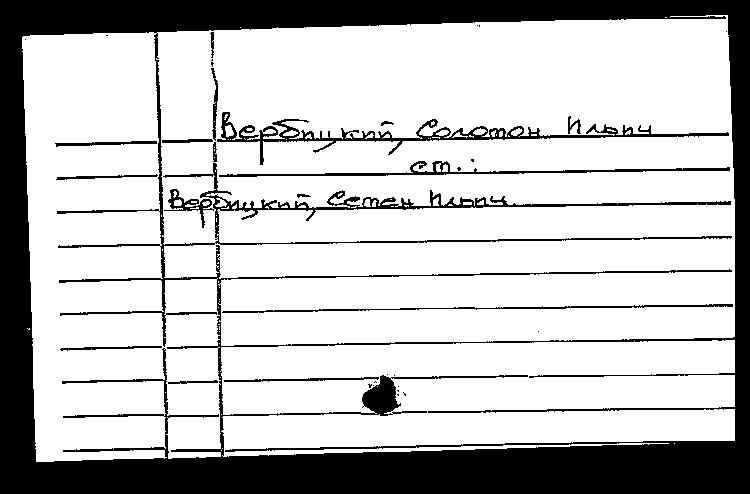 Вербицкий, Соломон Ильич
см.:
Вербицкий, Семен Ильич.